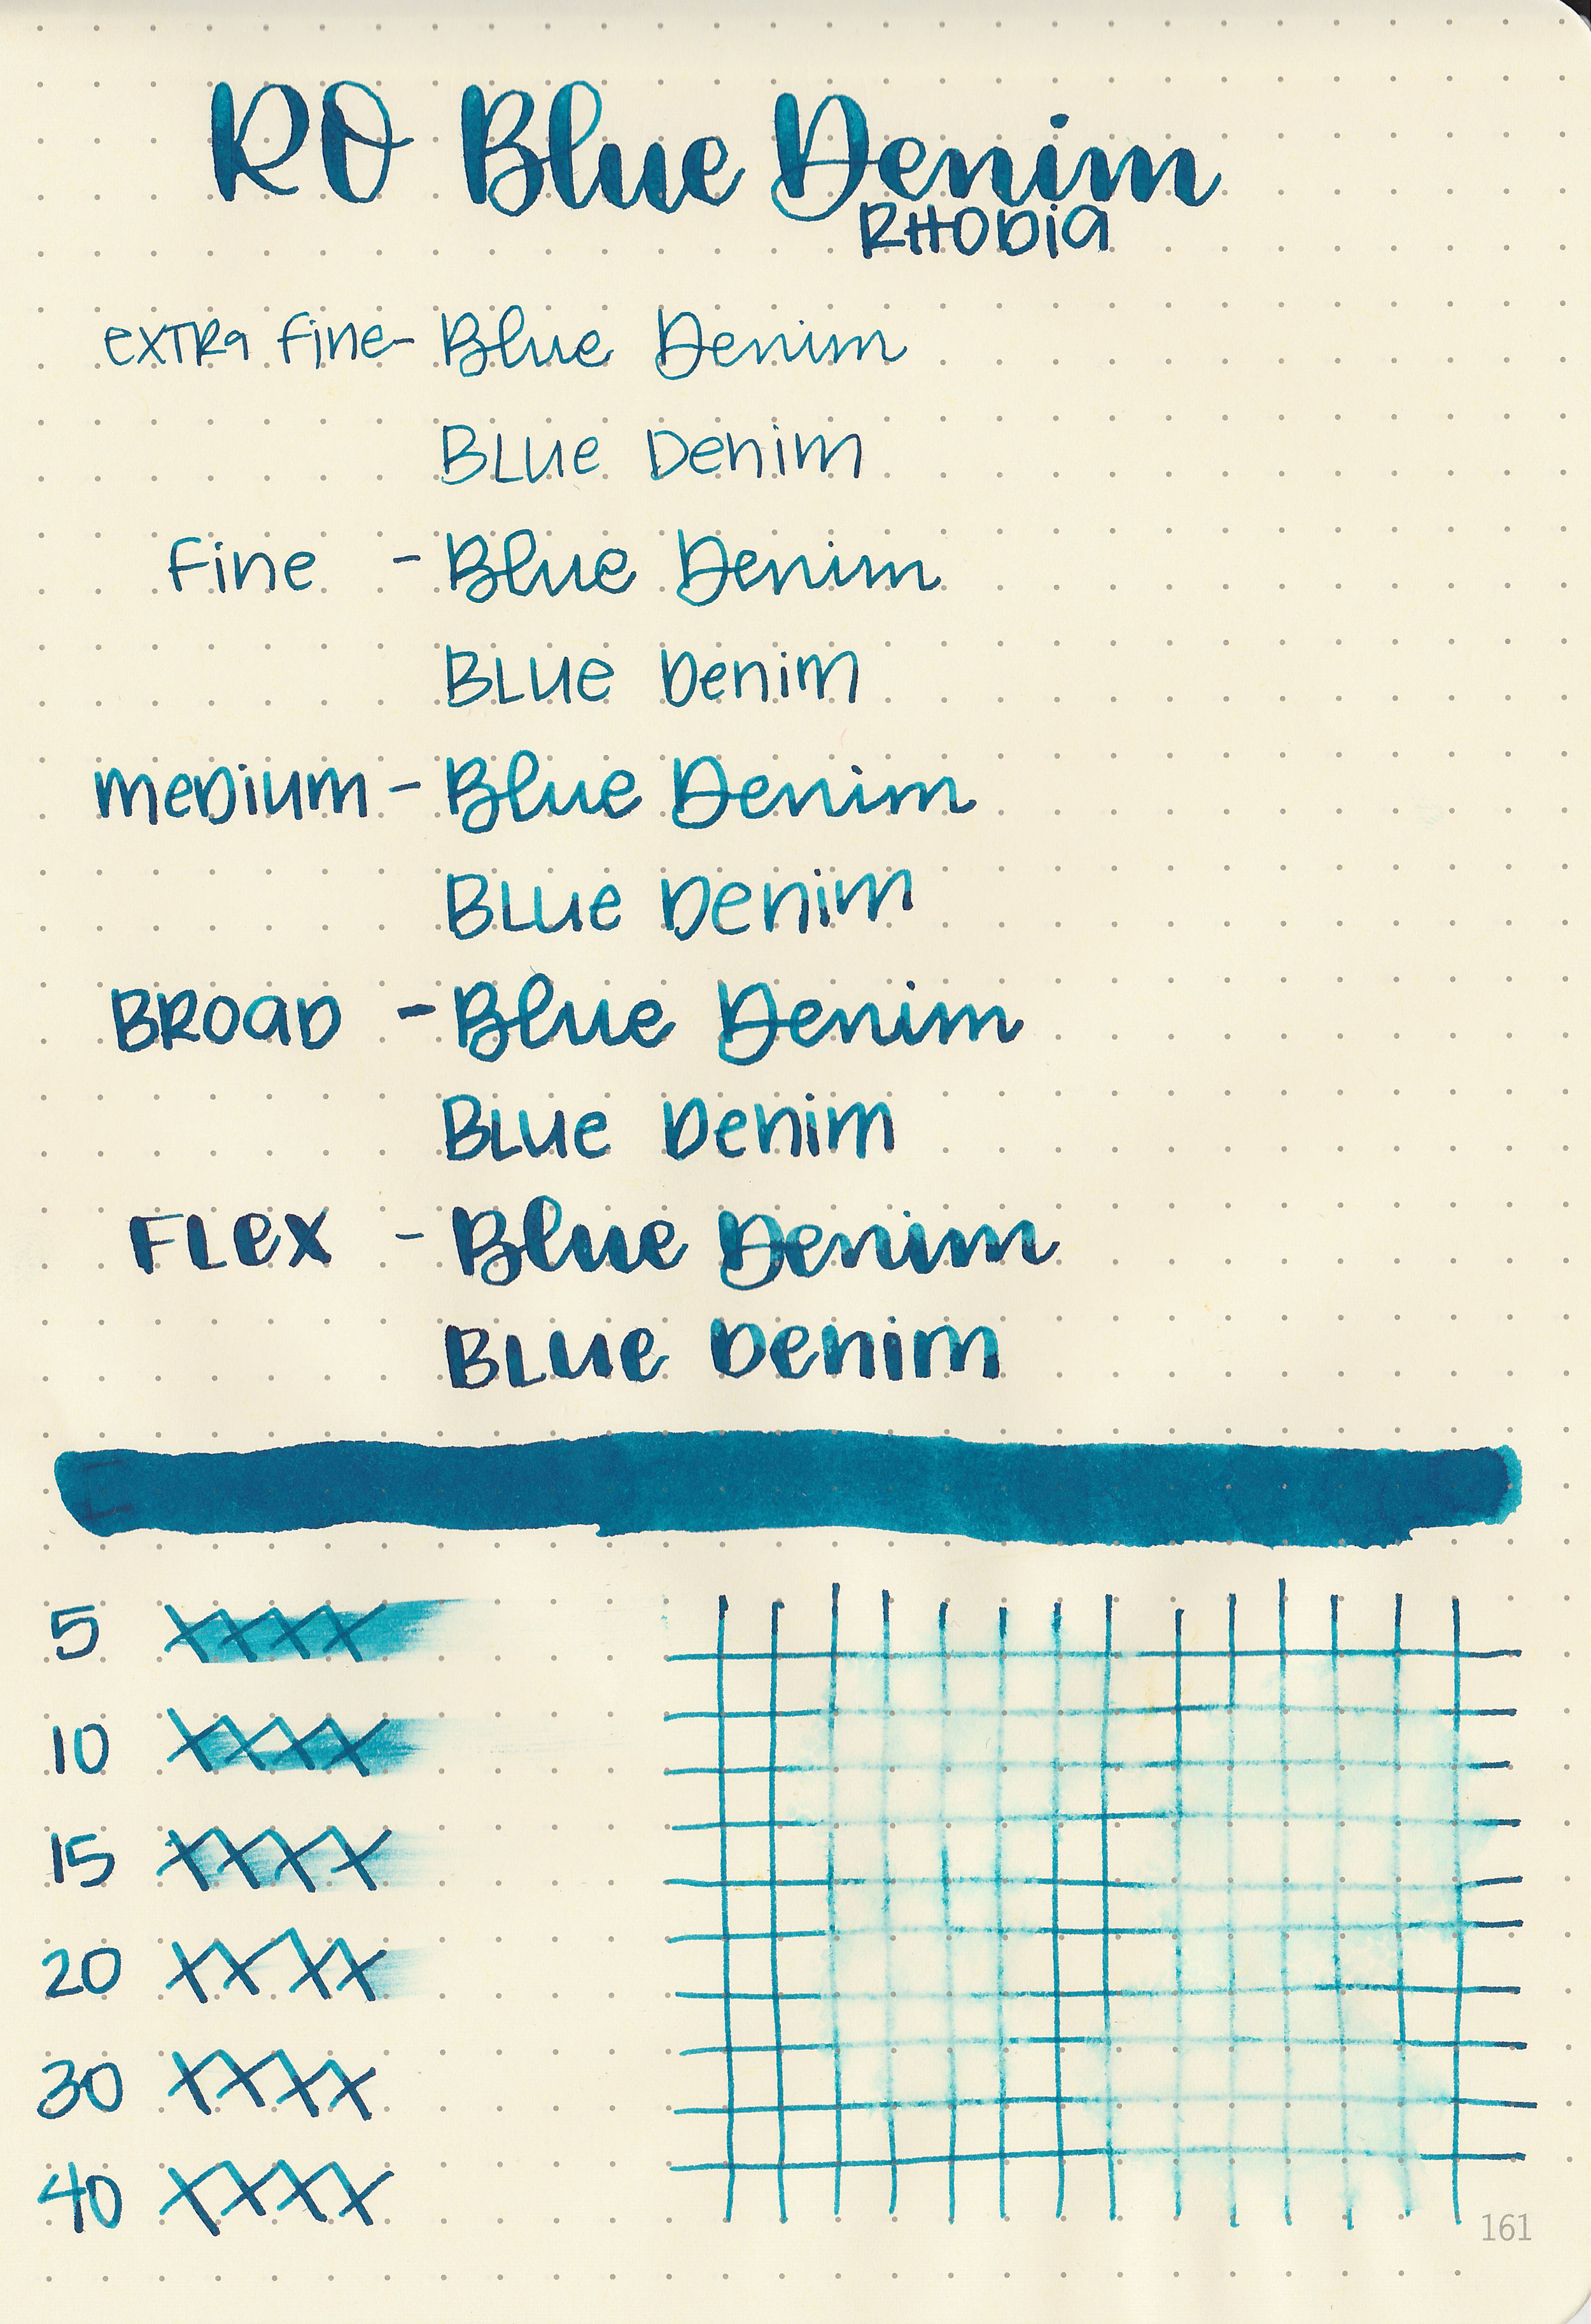 RO Blue Denim
RHODIA
extra fine- Blue Denim
Blue Denim
Fine - Blue Denim
Blue Denim
Medium - Blue Denim
Blue Denim
BROAD - Blue Denim
Blue Denim
FLex - Blue Denim
Blue Denim
5 XXXX
10 XXXX
15 XXXX
20 XXXX
30 XXXX
40 XXXX
161